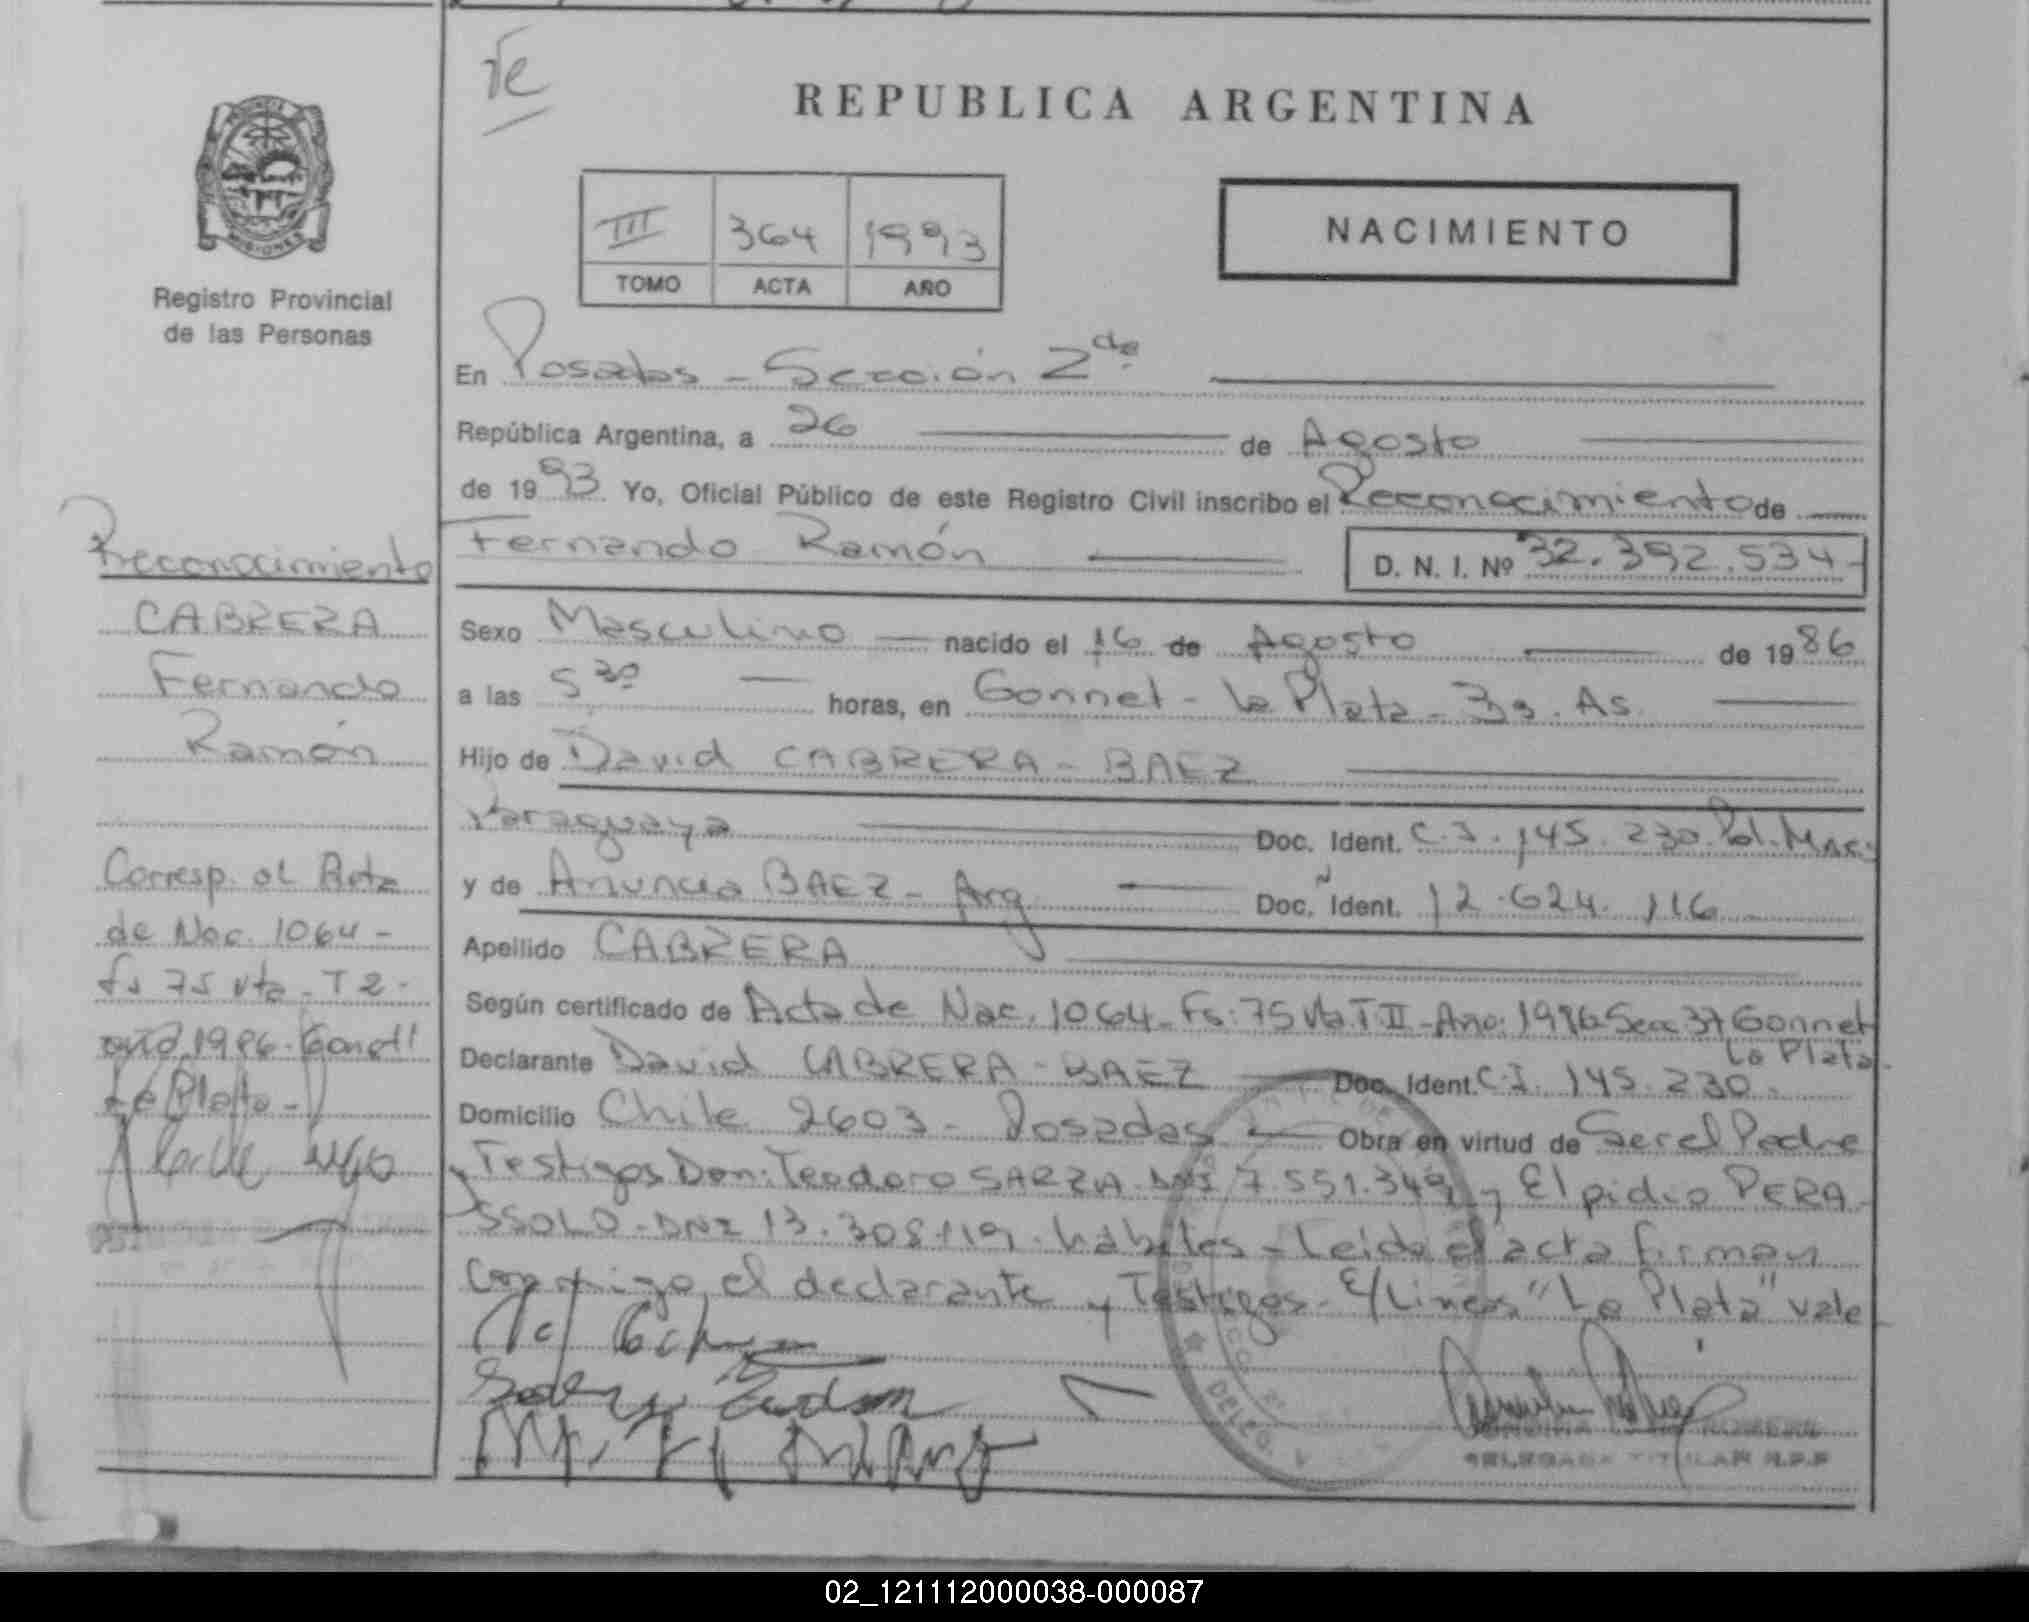 REPUBLICA ARGENTINA
MISIONES
Registro Provincial
de las Personas
III 364 1993
TOMO ACTA AÑO
NACIMIENTO
En Posadas - Sección 2da
República Argentina, a 26 de Agosto
de 1993. Yo, Oficial Público de este Registro Civil inscribo el Reconocimiento de
Fernando Ramón D. N. I. Nº 32.392.534-
Sexo Masculino nacido el 16 de Agosto de 1986
a las 5 30 horas, en Gonnet - La Plata - Bs. As.
Hijo de David CABRERA - BAEZ
Paraguaya Doc. Ident. C.I. 145.230 Pol.
y de BAEZ - Arg Doc. Ident. 12.624.116
Apellido CABRERA
Según certificado de Acta de Nac. 1064 - Fs: 75 Vta T II - Año: 1986 Secc Gonnet
La Plata.
Declarante David CABRERA - BAEZ Doc. Ident. C.I. 145.230.
Domicilio Chile 2603 - Posadas - Obra en virtud de Ser el Padre
Testigos Don: Teodoro SARZA DNI 7.551.349 y Elpidio PERA
SSOLO - DNI 13. hábiles - Leida el acta firman
conmigo el declarante y Testigos - E/Lineas "La Plata" vale
Reconocimiento
CABRERA
Fernando
Ramón
Corresp. al Acta
de Nac. 1064 -
fs 75 vta - T 2 -
1986 -
La Plata -
DELEGADA TITULAR R.P.P
02_121112000038-000087